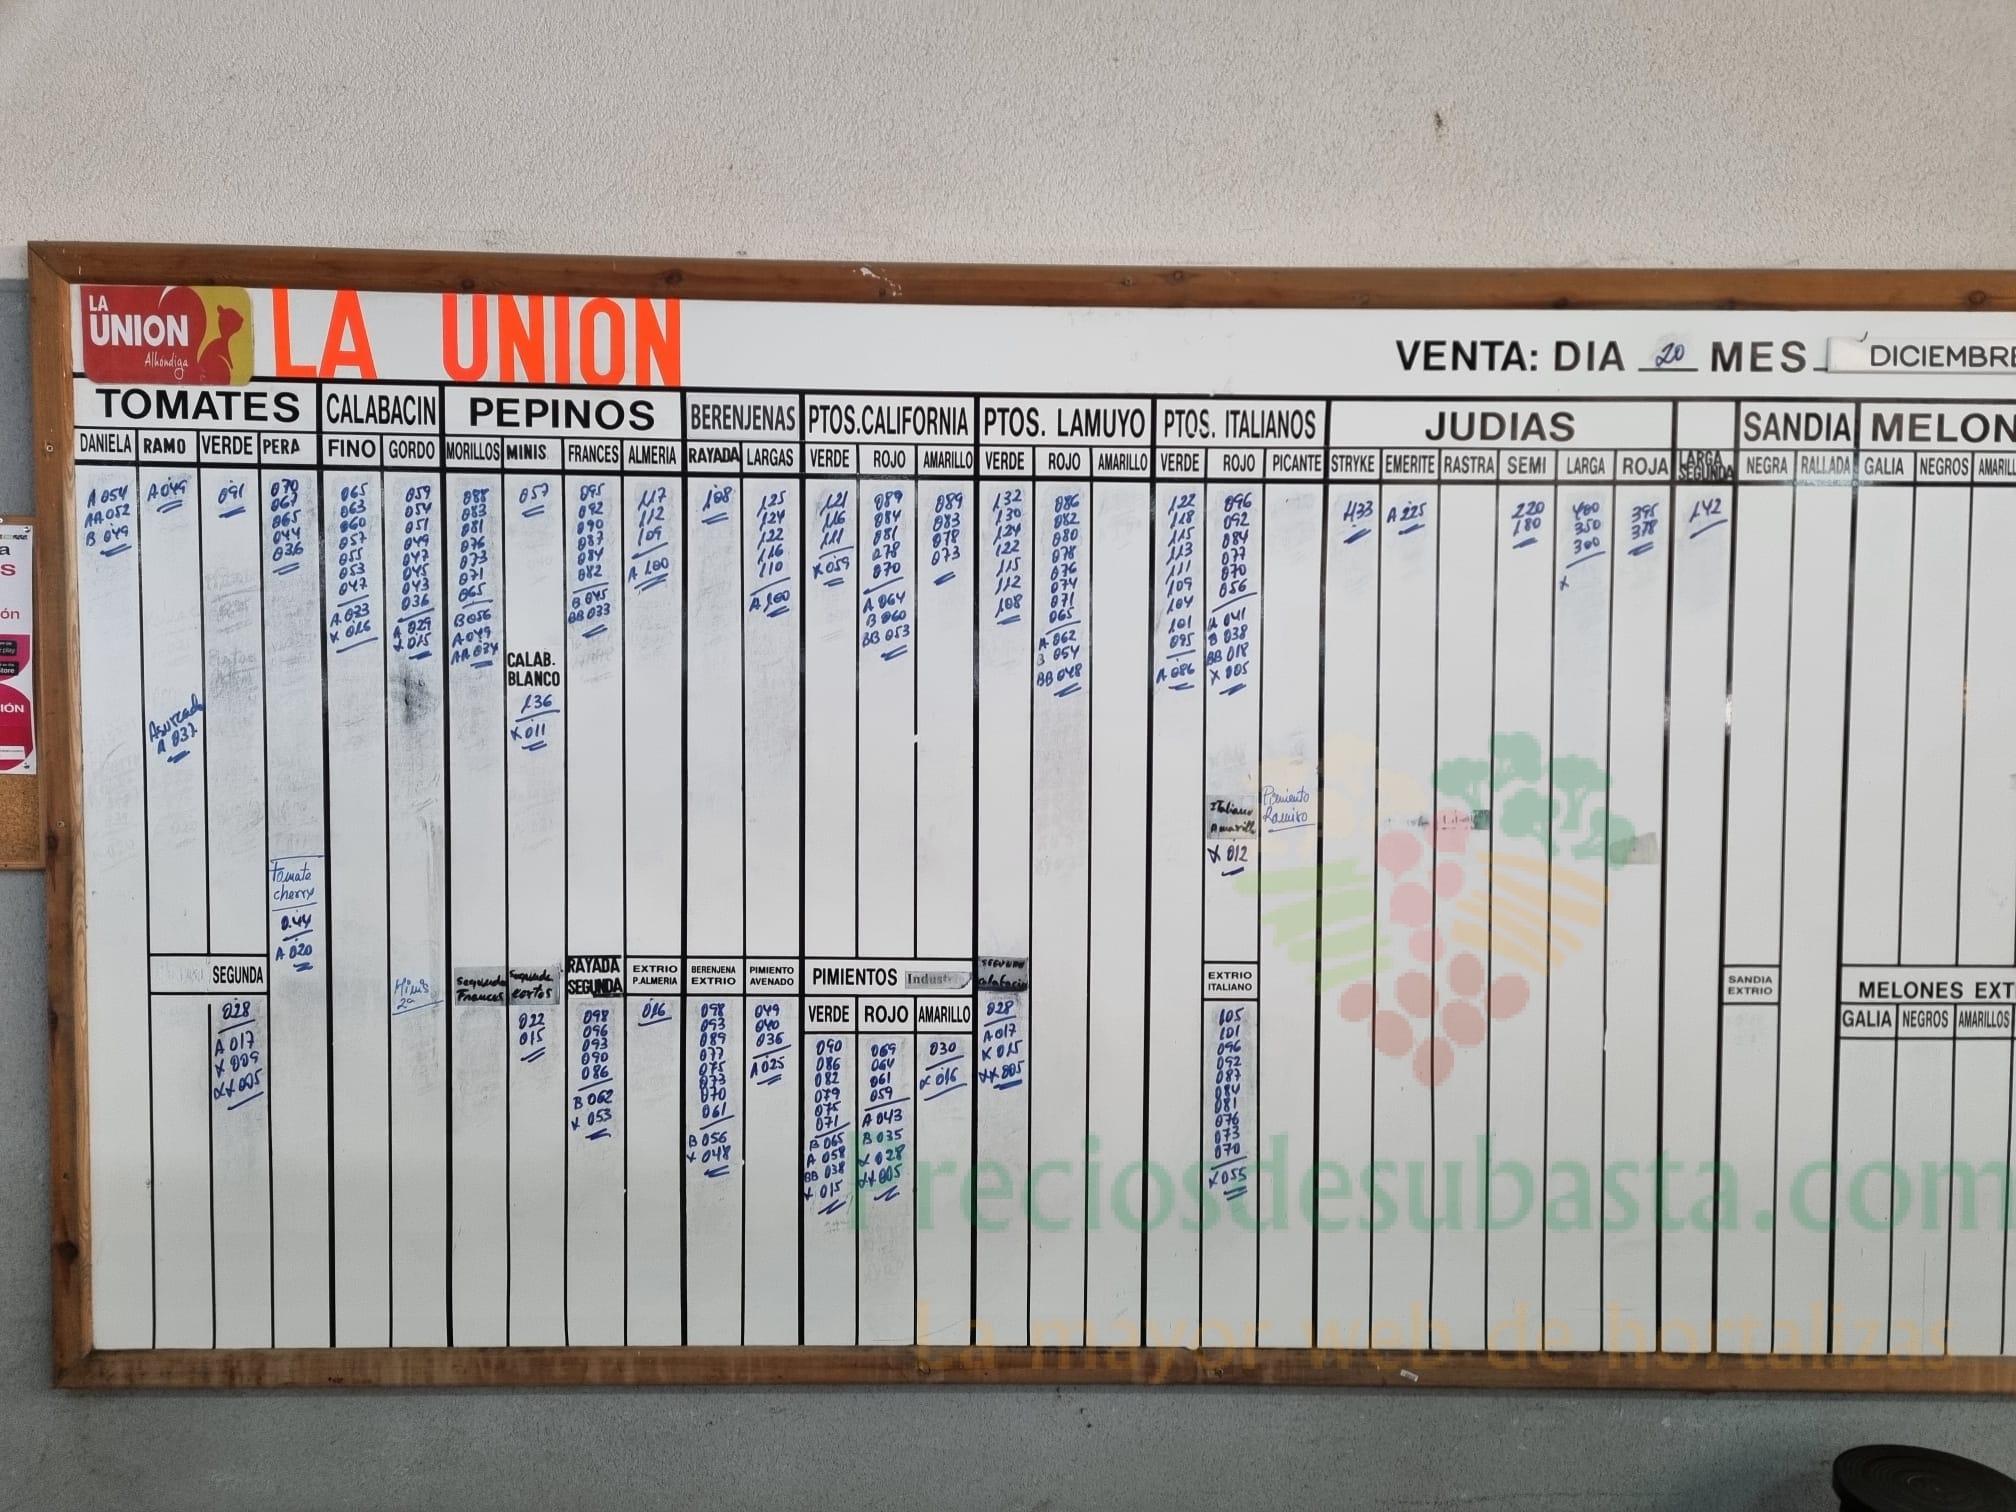 LA
UNION
Alhóndiga
LA UNION
VENTA: DIA 20 MES DICIEMBRE
TOMATES CALABACIN PEPINOS BERENJENAS PTOS.CALIFORNIA PTOS. LAMUYO PTOS. ITALIANOS JUDIAS SANDIA MELON
DANIELA RAMO VERDE PERA FINO GORDO MORILLOS MINIS FRANCES ALMERIA RAYADA LARGAS VERDE ROJO AMARILLO VERDE ROJO AMARILLO VERDE ROJO PICANTE STRYKE EMERITE RASTRA SEMI LARGA ROJA LARGA SEGUNDA NEGRA RALLADA GALIA NEGROS AMARIL
A 054
AA 052
B 049
A 049
091
070
067
065
044
036
065
063
060
057
055
053
047
A 023
X 016
059
054
051
049
047
045
043
036
A 029
X 015
088
083
081
076
073
071
065
B 056
A 049
AA 034
057
095
092
090
087
084
082
B 045
BB 033
117
112
109
A 100
108
125
124
122
116
110
A 100
121
116
111
X 059
089
084
081
078
070
A 064
B 060
BB 053
089
083
078
073
132
130
124
122
115
112
108
086
082
080
078
076
074
071
065
A 062
B 054
BB 048
122
118
115
113
111
109
104
101
095
A 086
096
092
084
077
070
056
A 041
B 038
BB 018
X 005
433
A 225
220
180
400
350
300
X
395
378
142
A 032
CALAB.
BLANCO
136
X 011
Italiano
Amarillo
X 012
Pimiento
Ramiro
Tomate
cherry
0.44
A 020
Minis
2ª
SEGUNDA
028
A 017
X 009
XX 005
Segunda
Frances
Segunda
cortos
022
015
RAYADA
SEGUNDA
098
096
093
090
086
B 062
X 053
EXTRIO
P.ALMERIA
016
BERENJENA
EXTRIO
098
093
089
077
075
073
070
061
B 056
X 048
PIMIENTO
AVENADO
049
040
036
A 025
PIMIENTOS Industria
VERDE ROJO AMARILLO
090
086
082
079
075
071
B 065
A 058
BB 038
X 015
069
064
061
059
A 043
B 035
X 028
XX 005
030
X 016
SEGUNDA
Calabacin
028
A 017
X 015
XX 005
EXTRIO
ITALIANO
105
101
096
092
087
084
081
076
073
070
X 055
SANDIA
EXTRIO
MELONES EXT
GALIA NEGROS AMARILLOS
Preciosdesubasta.com
La mayor web de hortalizas